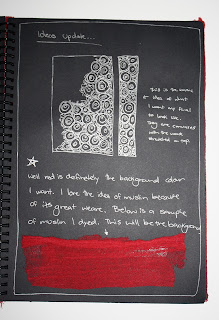 Ideas Update...
This is the basic
idea of what
I want my final
to look like.
They are connected
with the words
on top.
Well red is definetely the background color
I want. I love the idea of muslin because
of its great weave. Below is a sample
of muslin I dyed. This will be the background